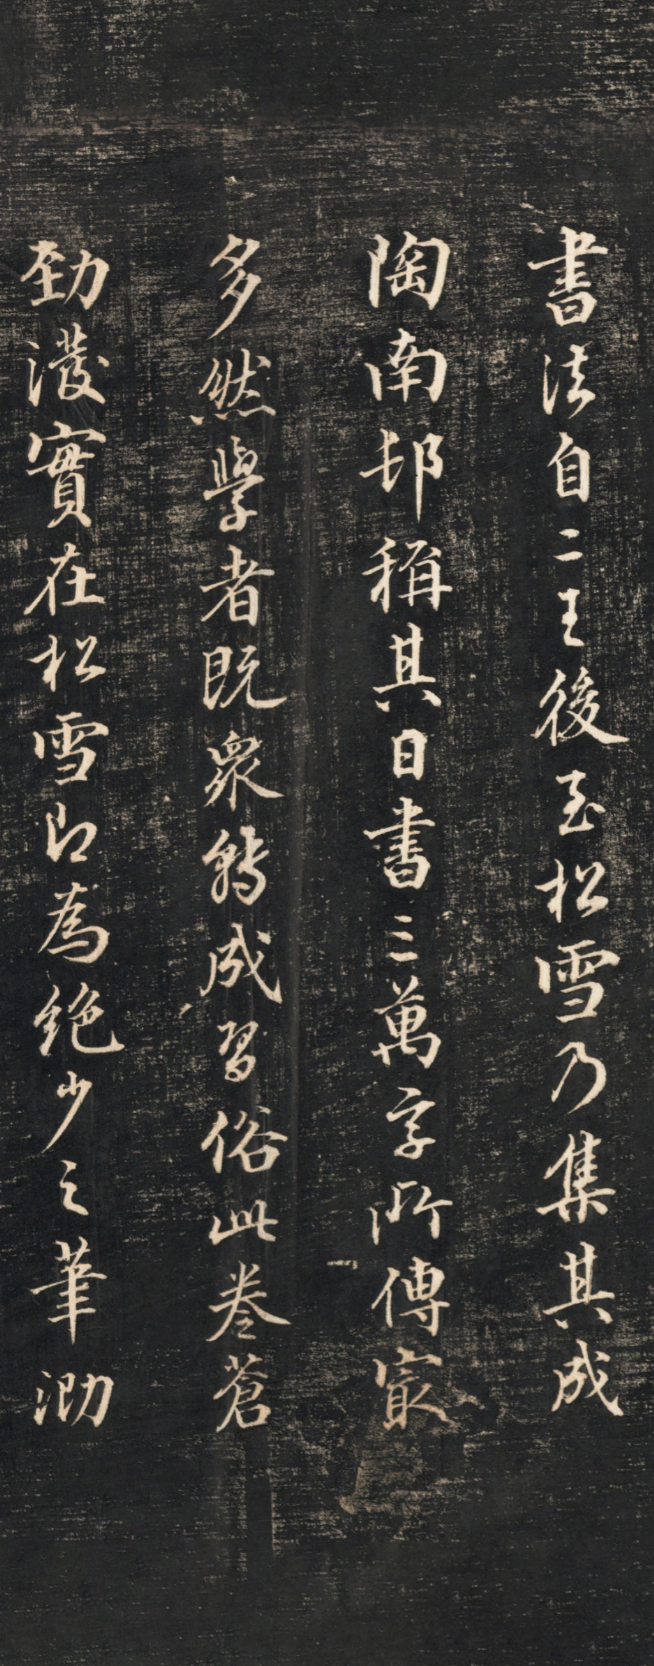 書法自二王後至松雪乃集其成
陶南邨稱其日書三萬字所傳寂
多然學者既衆轉成習俗此卷蒼
勁潑實在松雪即為絶少之筆泐